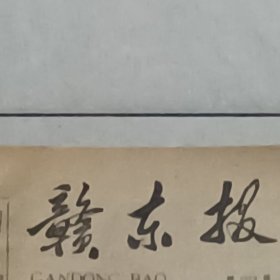 赣东报
GANDONG BAO